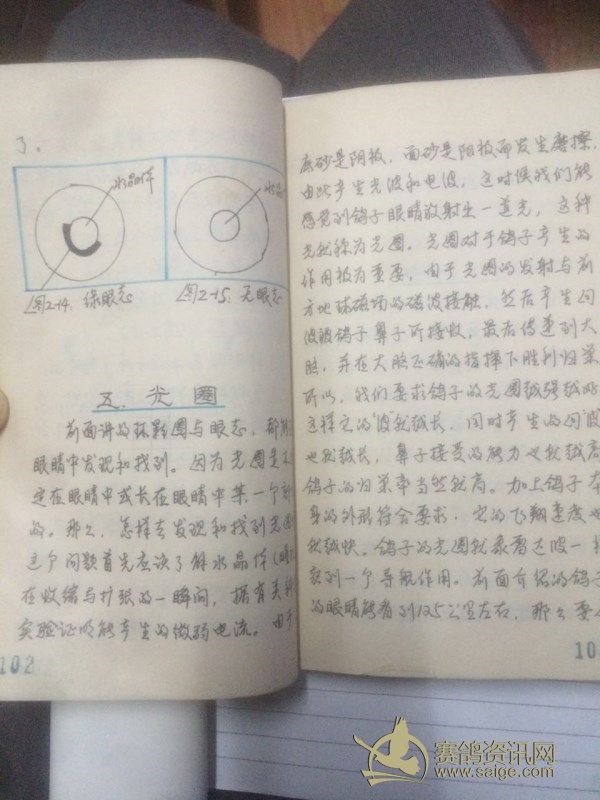 了。
水晶体
水晶
图2-14. 绿眼志
图2-15. 无眼志
五. 光圈
前面讲的弧形圈与眼志, 都
眼睛中发现和找到。因为光圈是不
定在眼睛中或长在眼睛中某一个
的。那么, 怎样去发现和找到光圈
这个问题首先应该了解水晶体
在收缩与扩张的一瞬间, 据有关
实验证明能产生的微弱电流。由于
102
底砂是阴极, 面砂是阳极而发生磨擦,
由此产生光波和电波, 这时候我们能
感觉到鸽子眼睛放射出一道光, 这种
光就称为光圈。光圈对于鸽子产生的
作用极为重要, 由于光圈的发射与前
方地球磁场的磁波接触, 然后产生回
波被鸽子鼻子所接收, 最后传递到大
脑, 并在大脑正确的指挥下胜利归巢
所以, 我们要求鸽子的光圈越强越好
这样它的波就越长, 同时产生的回波
也就越长, 鼻子接受的能力也就越高
鸽子的归巢率当然就高。加上鸽子本
身的外形符合要求, 它的飞翔速度也
就越快。鸽子的光圈就象雷达波一样
起到一个导航作用。前面介绍的鸽子
的眼睛能看到125公里左右, 那么要
10
赛鸽资讯网
www.saige.com